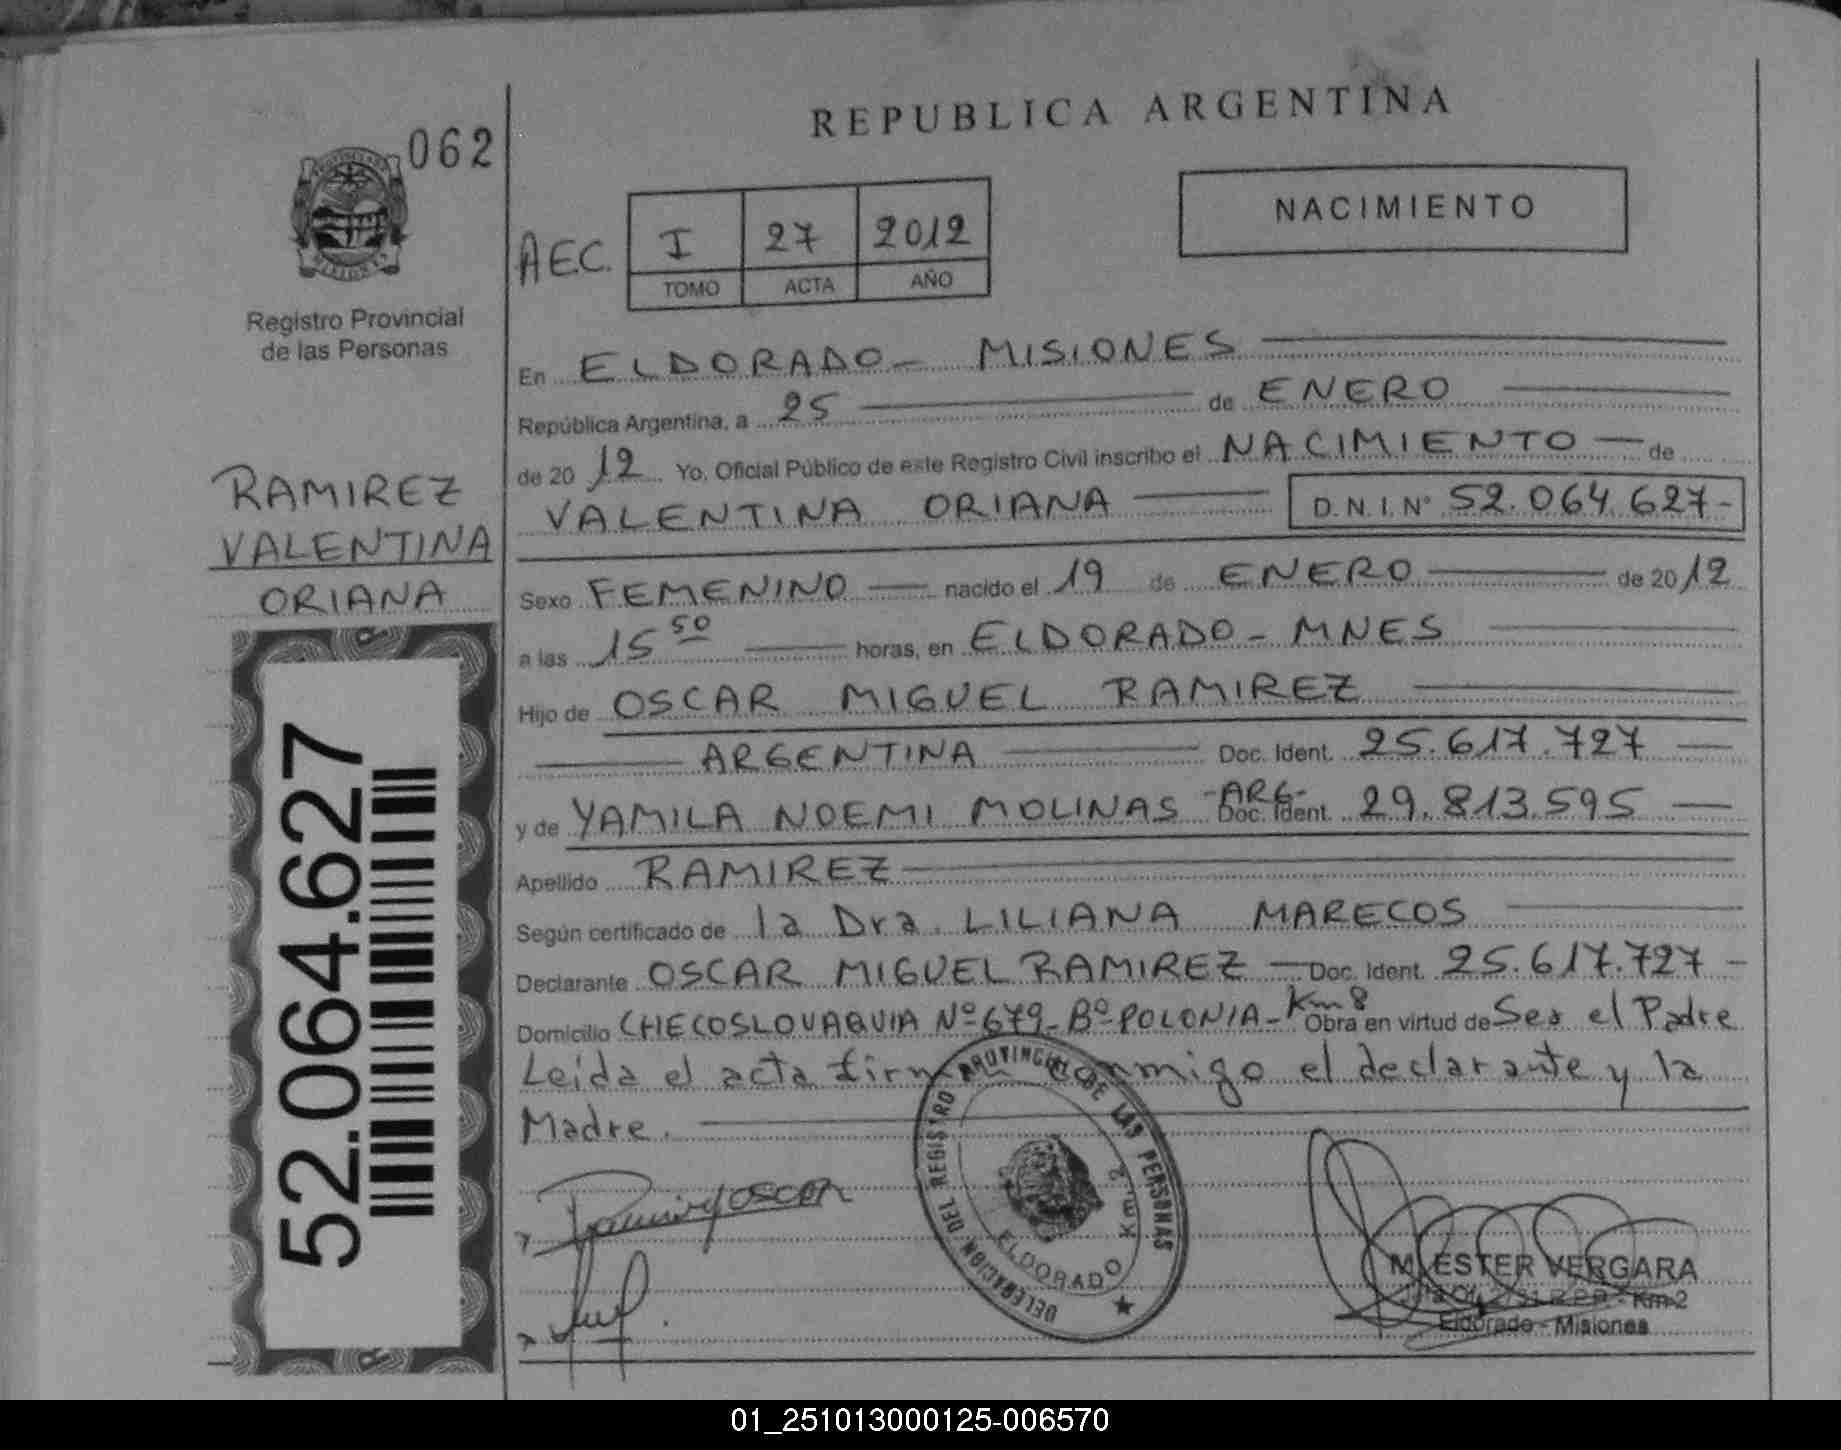 062
Registro Provincial
de las Personas
RAMIREZ
VALENTINA
ORIANA
52.064.627
REPUBLICA ARGENTINA
NACIMIENTO
AEC.
I 27 2012
TOMO ACTA AÑO
En ELDORADO - MISIONES
República Argentina, a 25 de ENERO
de 20 12 Yo, Oficial Público de este Registro Civil inscribo el NACIMIENTO de
VALENTINA ORIANA D.N.I. Nº 52.064.627-
Sexo FEMENINO nacido el 19 de ENERO de 20 12
a las 15 50 horas, en ELDORADO - MNES
Hijo de OSCAR MIGUEL RAMIREZ
ARGENTINA Doc. Ident. 25.617.727
y de YAMILA NOEMI MOLINAS -ARG- Doc. Ident. 29.813.595
Apellido RAMIREZ
Según certificado de la Dra. LILIANA MARECOS
Declarante OSCAR MIGUEL RAMIREZ Doc. Ident. 25.617.727 -
Domicilio CHECOSLOVAQUIA Nº 679- Bº POLONIA- Km 8 Obra en virtud de Ser el Padre
Leída el acta conmigo el declarante y la
Madre.
DELEGACION DEL REGISTRO PROVINCIAL DE LAS PERSONAS
ELDORADO Km. 2
OSCAR
M. ESTER VERGARA
R.P.P. - Km 2
Eldorado - Misiones
01_251013000125-006570